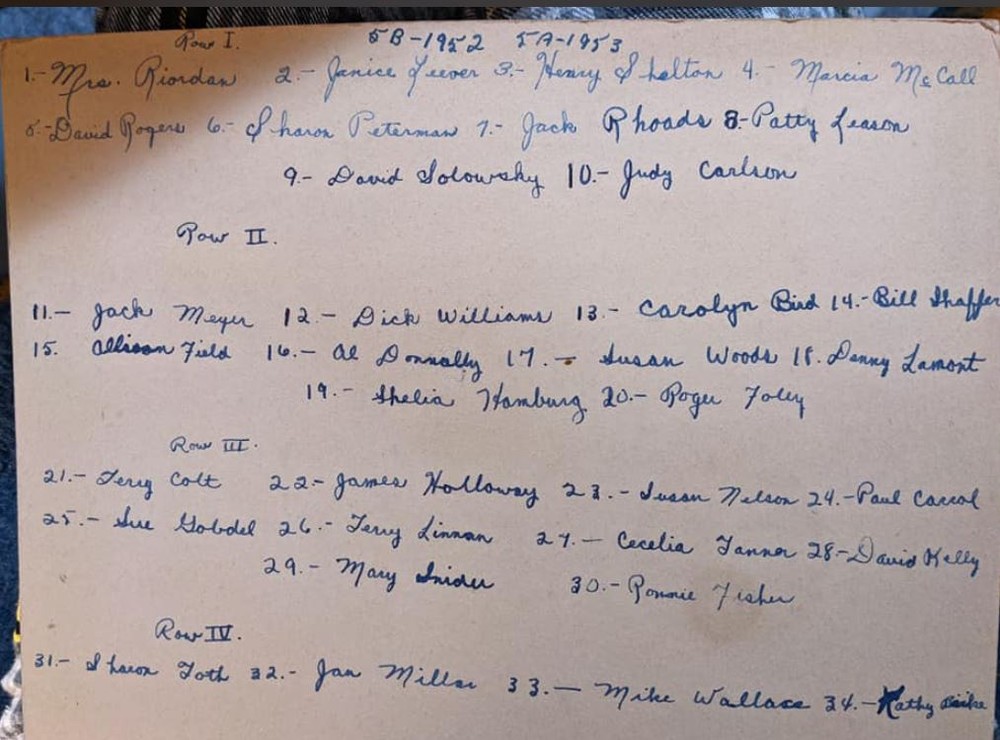 Row I. 5B-1952 5A-1953
1.- Mrs. Riordan 2.- Janice Leever 3.- Henry Shelton 4.- Marcia McCall
5.- David Rogers 6.- Sharon Peterman 7.- Jack Rhoads 8.- Patty Leason
9.- David Solowsky 10.- Judy Carlson
Row II.
11.- Jack Meyer 12.- Dick Williams 13.- Carolyn Bird 14.- Bill Shaffer
15. Allison Field 16.- Al Donnally 17.- Susan Woods 18. Denny Lamont
19.- Shelia Hamburg 20.- Roger Foley
Row III.
21.- Terry Colt 22- James Holloway 23.- Susan Nelson 24.- Paul Carrol
25.- Sue Gobdel 26.- Terry Linnan 27.- Cecelia Tanner 28- David Kelly
29.- Mary Snider 30.- Ronnie Fisher
Row IV.
31.- Sharon Toth 32.- Jan Millar 33.- Mike Wallace 34.- Kathy